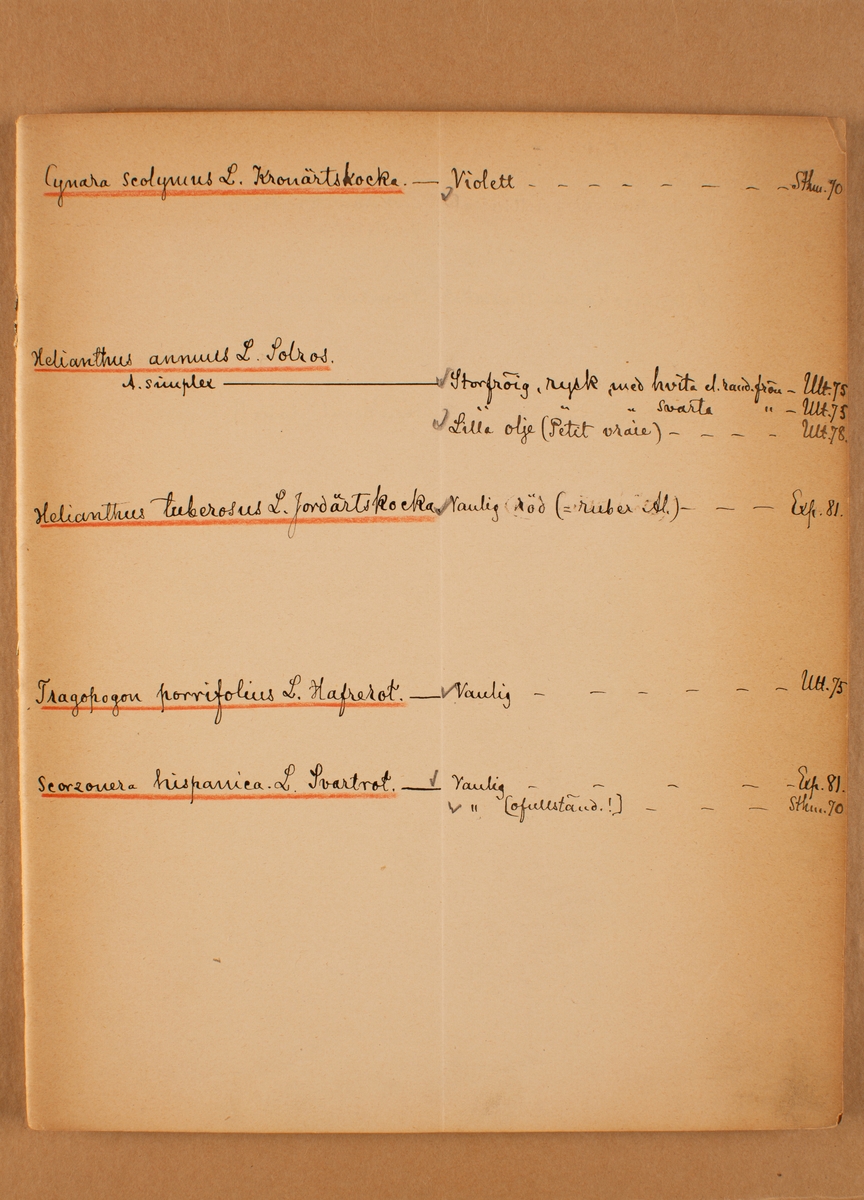 Cynara scolymus L. Kronärtskocka. — ✓ Violett - - - - - - - - Sthm. 70
Helianthus annuus L. Solros.
A. simplex — ✓ Storfröig, rysk med hvita el. rand. frön - Ult. 75
" " svarta " - Ult. 75
✓ Lilla olje (Petit vraie) - - - - Ult. 78.
Helianthus tuberosus L. Jordärtskocka ✓ Vanlig röd (= ruber Al.) - - - Exp. 81.
Tragopogon porrifolius L. Hafrerot. — ✓ Vanlig - - - - - - Ult. 75
Scorzonera hispanica. L. Svartrot. — ✓ Vanlig - - - - - Exp. 81.
✓ " [ofullständ.!] - - - - Sthm. 70